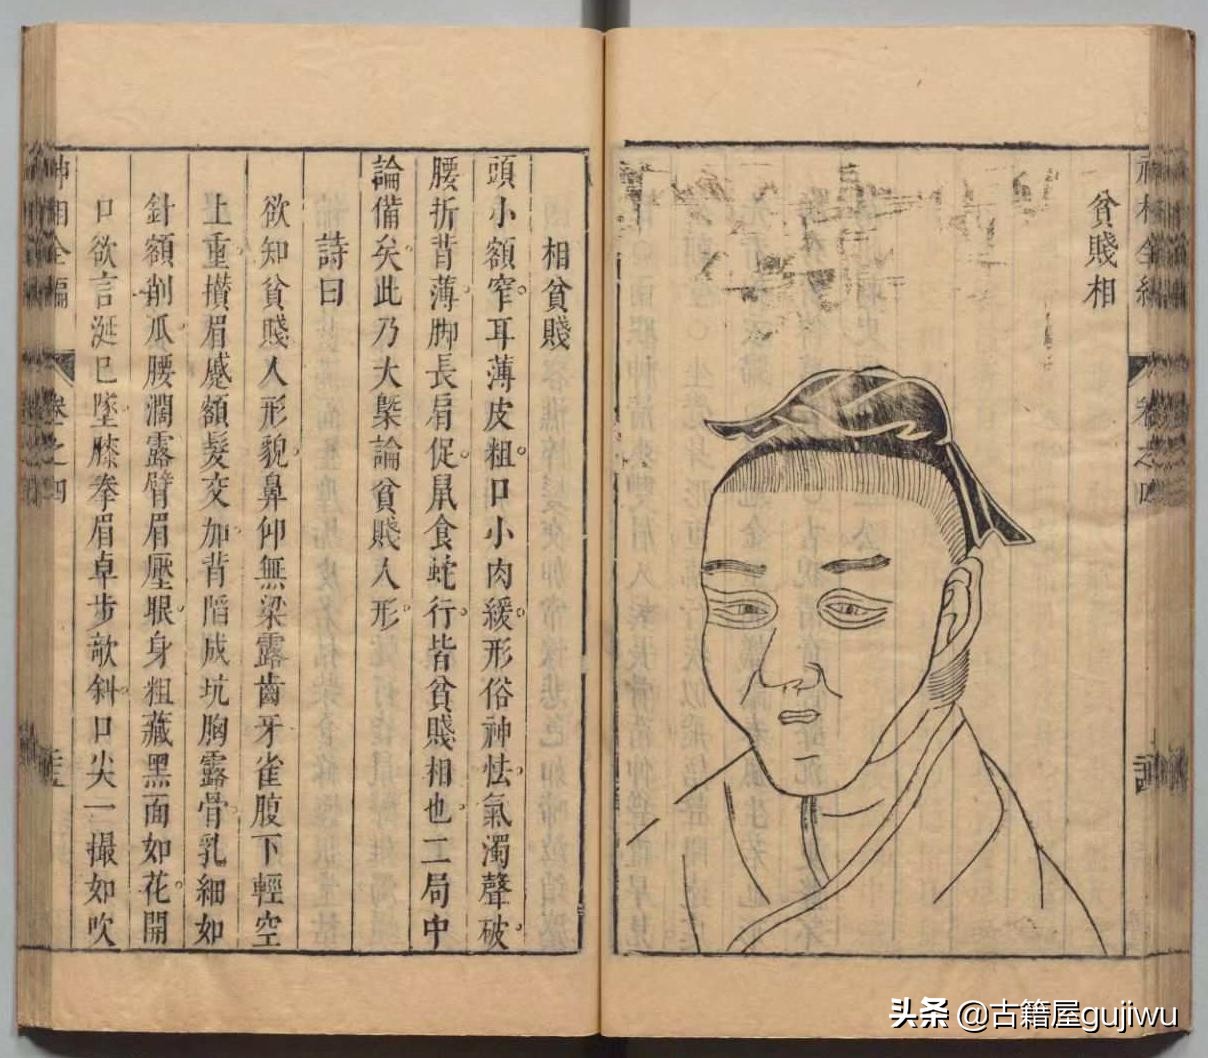 神相全編 卷之四
貧賤相
相貧賤
頭小額窄耳薄皮粗口小肉緩形俗神怯氣濁聲破
腰折背薄脚長肩促鼠食蛇行皆貧賤相也二局中
論備矣此乃大槩論貧賤人形
詩曰
欲知貧賤人形貌鼻仰無梁露齒牙雀腹下輕空
上重攢眉蹙額髮交加背陷成坑胸露骨乳細如
針額削瓜腰濶露臂眉壓眼身粗藏黑面如花開
口欲言涎巳墜膝拳眉卓步欹斜口尖一撮如吹
神相全編 卷之四
头条 @古籍屋gujiwu